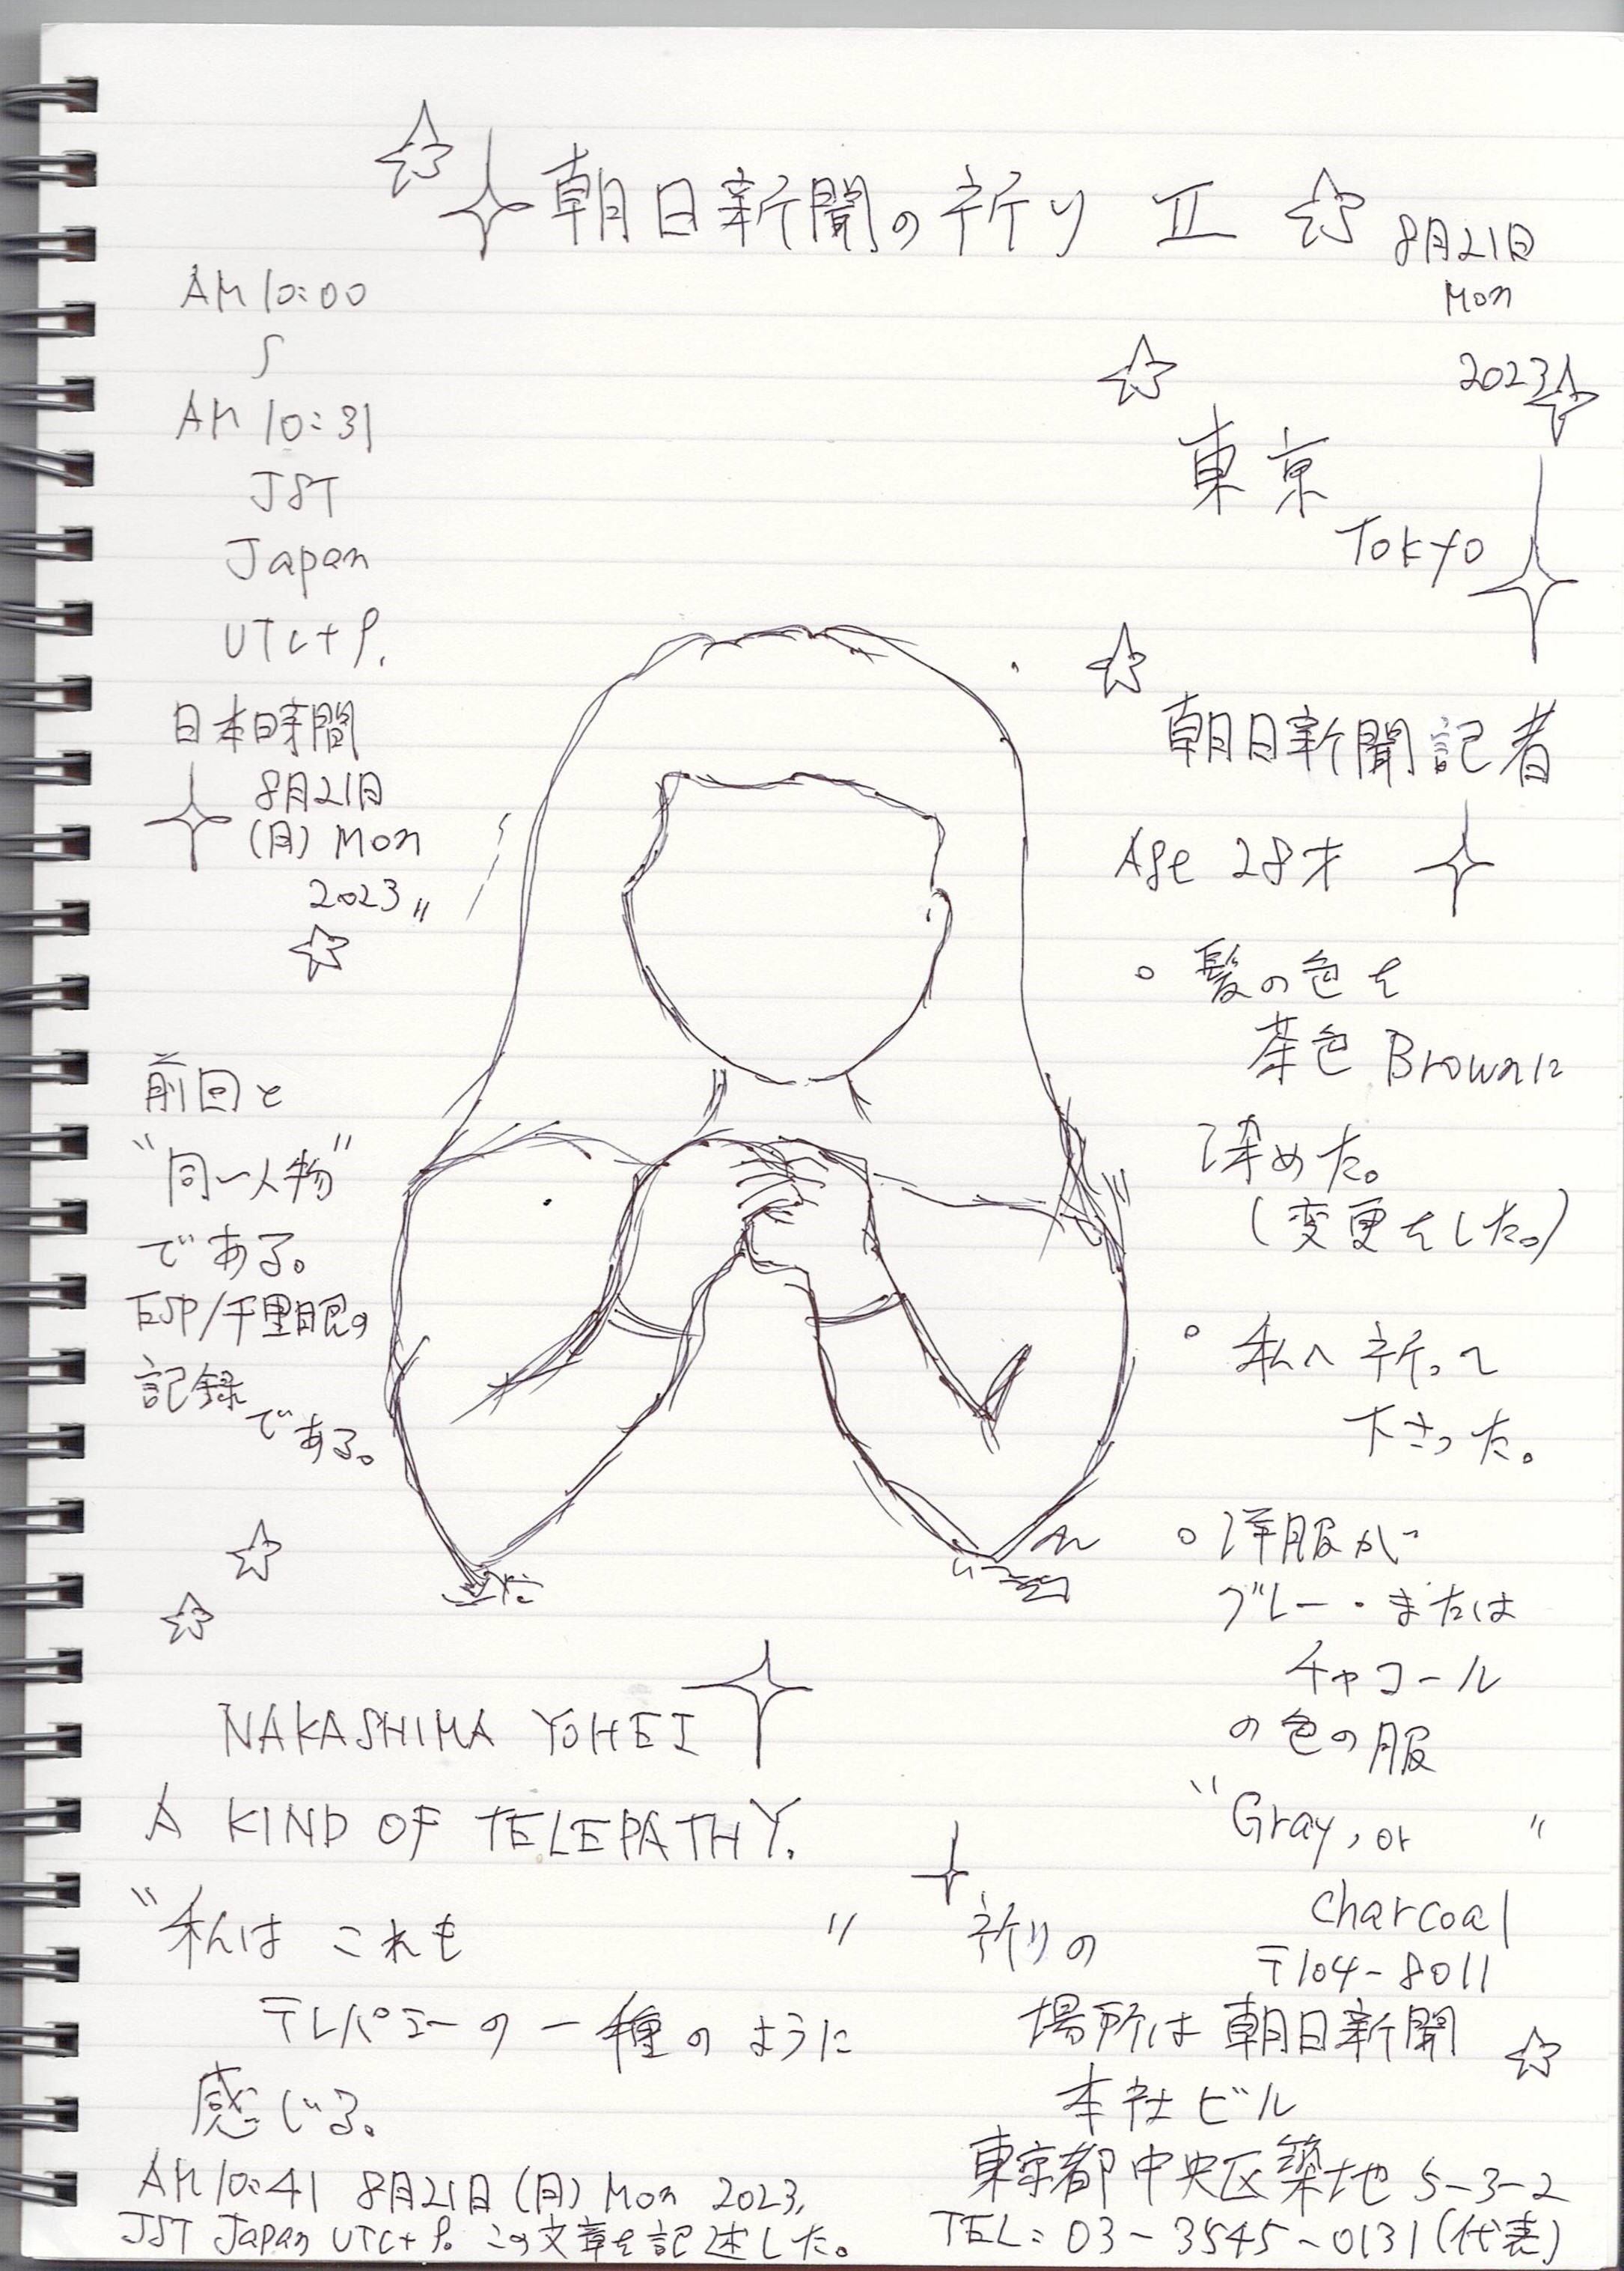 朝日新聞の祈り Ⅱ
8月21日
Mon
2023
AM 10:00
∫
AM 10:31
JST
Japan
UTC+9.
日本時間
8月21日
(月) Mon
2023〃
東京
Tokyo
朝日新聞記者
Age 28才
○ 髪の色を
茶色 Brownに
染めた。
(変更をした。)
○ 私へ祈って
下さった。
○ 洋服が
グレー・または
チャコール
の色の服
"Gray, or
charcoal"
前回と
"同一人物"
である。
ESP/千里眼の
記録
である。
NAKASHIMA YOHEI
A KIND OF TELEPATHY.
"私は これも"
テレパシーの一種のように
感じる。
AM 10:41 8月21日(月) Mon 2023,
JST Japan UTC+9. この文章を記述した。
祈りの
〒104-8011
場所は朝日新聞
本社ビル
東京都中央区築地 5-3-2
TEL: 03-3545-0131(代表)